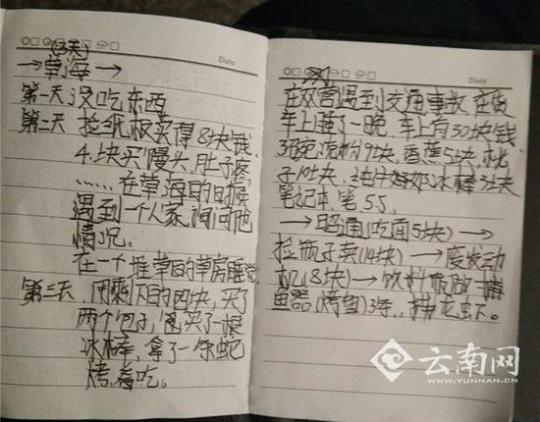 (3天)
→草海→
第一天没吃东西
第二天 捡纸板买得8块钱
4块买馒头,肚子疼
……在草海的时候
遇到一个人家询问他
情况。
在一个堆草的草房睡觉
第三天,用剩下的四块,买了
两个包子,包买了一根
冰棒,拿了一条蛇
烤着吃。
Date
在双营遇到交通事故 在货
车上睡了一晚,车上有30块钱
3碗凉粉9块,香蕉5块,桃
子10块,冰棒3块
笔记本,笔5.5,
→昭通(吃面5块)→
捡瓶子卖(14块)→废发动
机(8块)→饮料瓶做捕
鱼器(烤鱼)3条,
Date
云南网
WWW.YUNNAN.CN